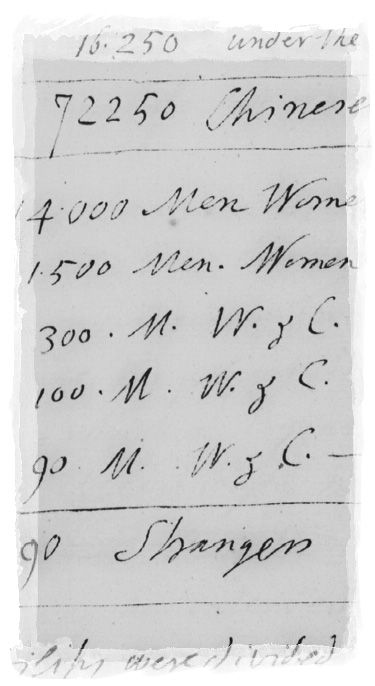 16.250 under the
72250 Chinese
4.000 Men Wome
1.500 Men. Women
300. M. W. & C.
100. M. W. & C.
90 M. W. & C. —
90 Strangers
were divided